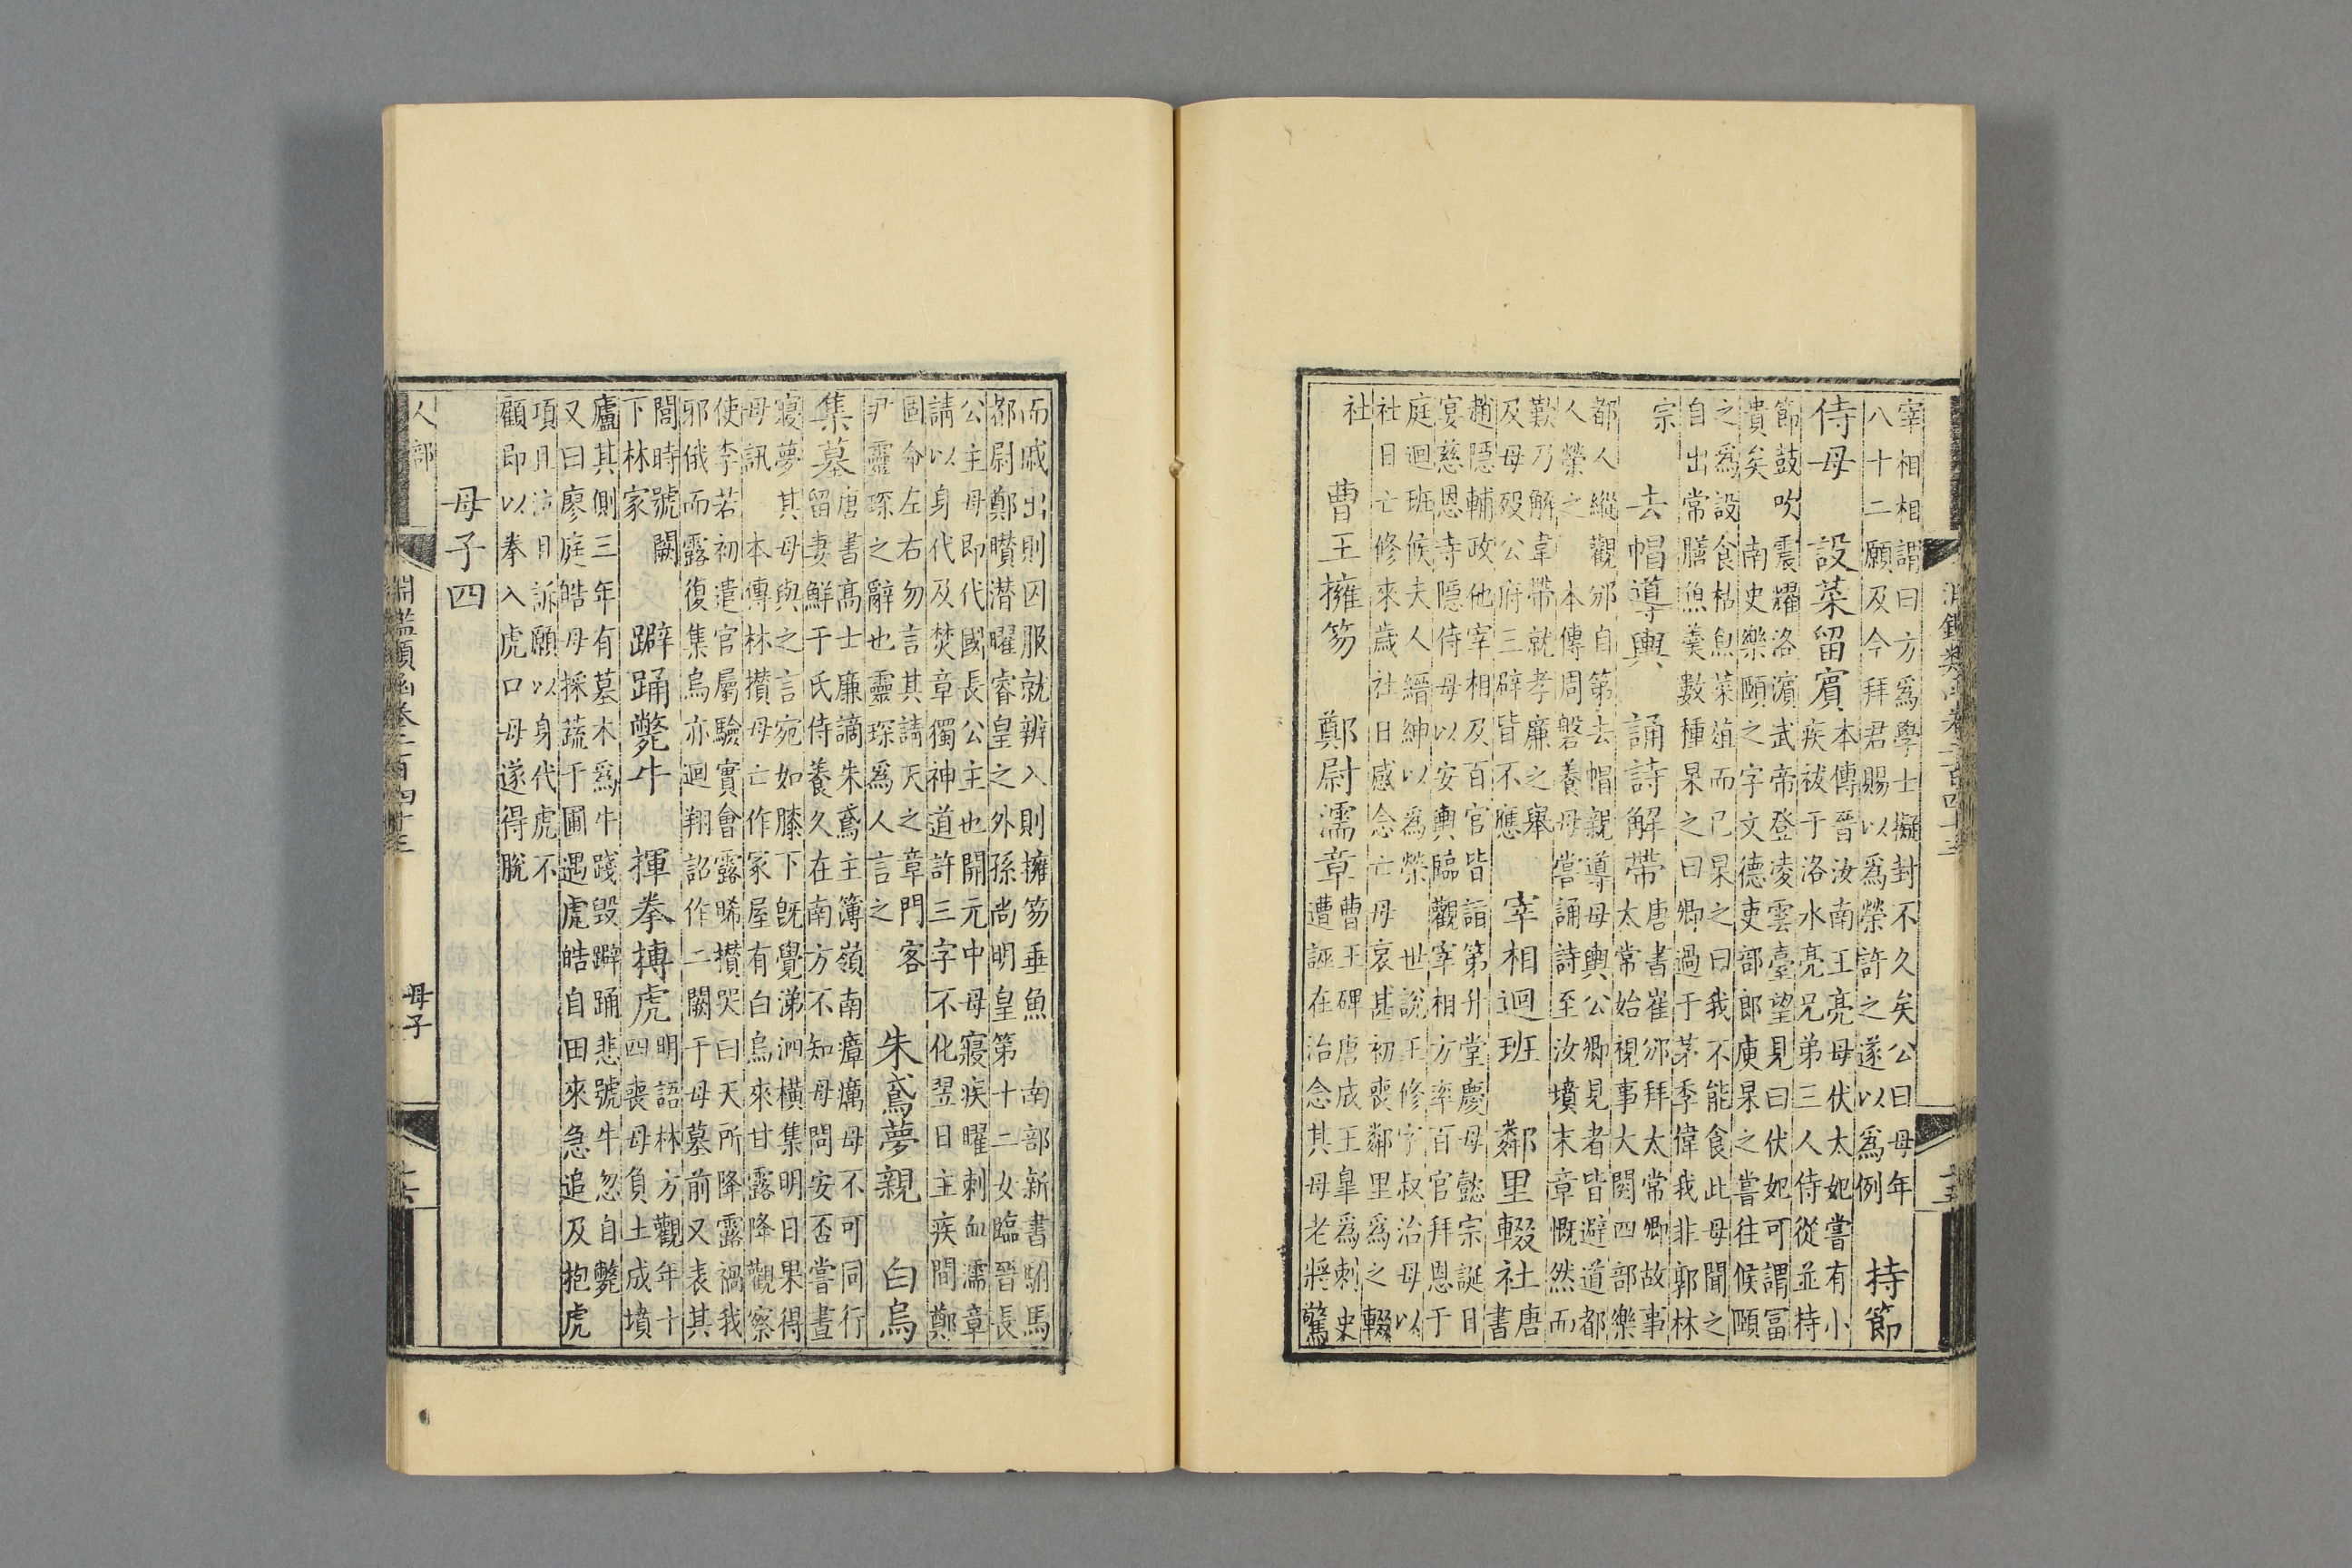 淵鑑類函卷二百四十三
宰相相謂曰方爲學士擬封不久矣公曰母年
八十二願及今拜君賜以爲榮許之遂以爲例
持節
侍母　設菜留賓
本傳晉汝南王亮母伏太妃嘗有小
疾祓于洛水亮兄弟三人侍從並持
節鼓吹震耀洛濱武帝登凌雲臺望見曰伏妃可謂富
貴矣　南史樂頤之字文德吏部郎庾杲之嘗往候頤
之爲設食枯魚菜葅而已杲之曰我不能食此母聞之
自出常膳魚羹數種杲之曰卿過于茅季偉我非郭林
宗
去帽導輿　誦詩解帶
唐書崔邠拜太常卿故事
太常始視事大閱四部樂
都人縱觀邠自第去帽親導母輿公卿見者皆避道都
人榮之　本傳周磐養母嘗誦詩至汝墳末章慨然而
歎乃解韋帶就孝廉之舉
及母歿公府三辟皆不應
宰相迴班　鄰里輟社
唐
書
趙隱輔政他宰相及百官皆詣第升堂慶母懿宗誕日
宴慈恩寺隱侍母以安輿臨觀宰相方率百官拜恩于
庭迴班候夫人縉紳以爲榮　世說王修字叔治母以
社日亡修來歲社日感念亡母哀甚初喪鄰里爲之輟
社
曹王擁笏　鄭尉濡章
曹王碑唐成王皐爲刺史
遭誣在治念其母老將驚
而戚出則囚服就辨入則擁笏垂魚　南部新書駙馬
都尉鄭瓚潛曜睿皇之外孫尚明皇第十二女臨晉長
公主母即代國長公主也開元中母寢疾曜刺血濡章
請以身代及焚章獨神道許三字不化翌日主疾間鄭
固命左右勿言其請天之章門客
尹靈琛之辭也靈琛爲人言之
朱鳶夢親　白烏
集墓
唐書高士廉謫朱鳶主簿嶺南瘴癘母不可同行
留妻鮮于氏侍養久在南方不知母問安否嘗晝
寢夢其母與之言宛如膝下旣覺涕泗橫集明日果得
母訊　本傳林攢母亡作冢屋有白烏來甘露降觀察
使李若初遣官屬驗實會露晞攢哭曰天所降露禍我
邪俄而露復集烏亦迴翔詔作二闕于母墓前又表其
閭時號闕
下林家
躃踊斃牛　揮拳搏虎
明語林方觀年十
四喪母負土成墳
廬其側三年有墓木爲牛踐毀躃踊悲號牛忽自斃
又曰廖庭皓母採蔬于圃遇虎皓自田來急追及抱虎
項且泣且訴願以身代虎不
顧即以拳入虎口母遂得脫
母子四
人部
淵鑑類函卷二百四十三
母子